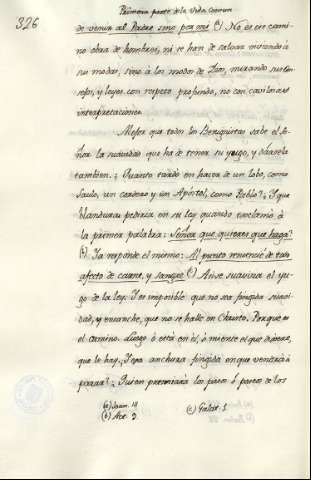 326
Primera parte de la Vida Comun
de venir al Padre sino por mi (a) No es ese cami-
no obra de hombres, ni se han de salvar mirando à
sus modas, sino à los modos de Dios, mirando sus con-
sejos, y leyes con respeto profundo, no con cavilosas
interpretaciones.
Mejor que todos los Benignistas sabe el Se-
ñor la suavidad que ha de tener su yugo, y dàrsela
tambien. ¿ Quanto tardò en hacer de un lobo, como
Saulo, un cordero y un Apóstol, como Pablo? ¿ Y que
blanduras pediria en su ley quando exclamò à
la primera palabra: Señor que quieres que haga?
(b) Ya responde el mismo: Al punto renuncié de todo
afecto de carne, y sangre (c) Asi se suaviza el yu-
go de la ley. Y es imposible que no sea fingida suavi-
dad, y ensanche, que no se halle en Christo. Porque es
el camino. Luego ò està en él, ò miente el que dixere,
que le hay. ¿ Y esa anchura fingida en que vendrà à
parar? ¿ Quien presentaria los pasos ò paseos de los
(a) Joan. 14
(b) Act. 9
(c) Galat. 1